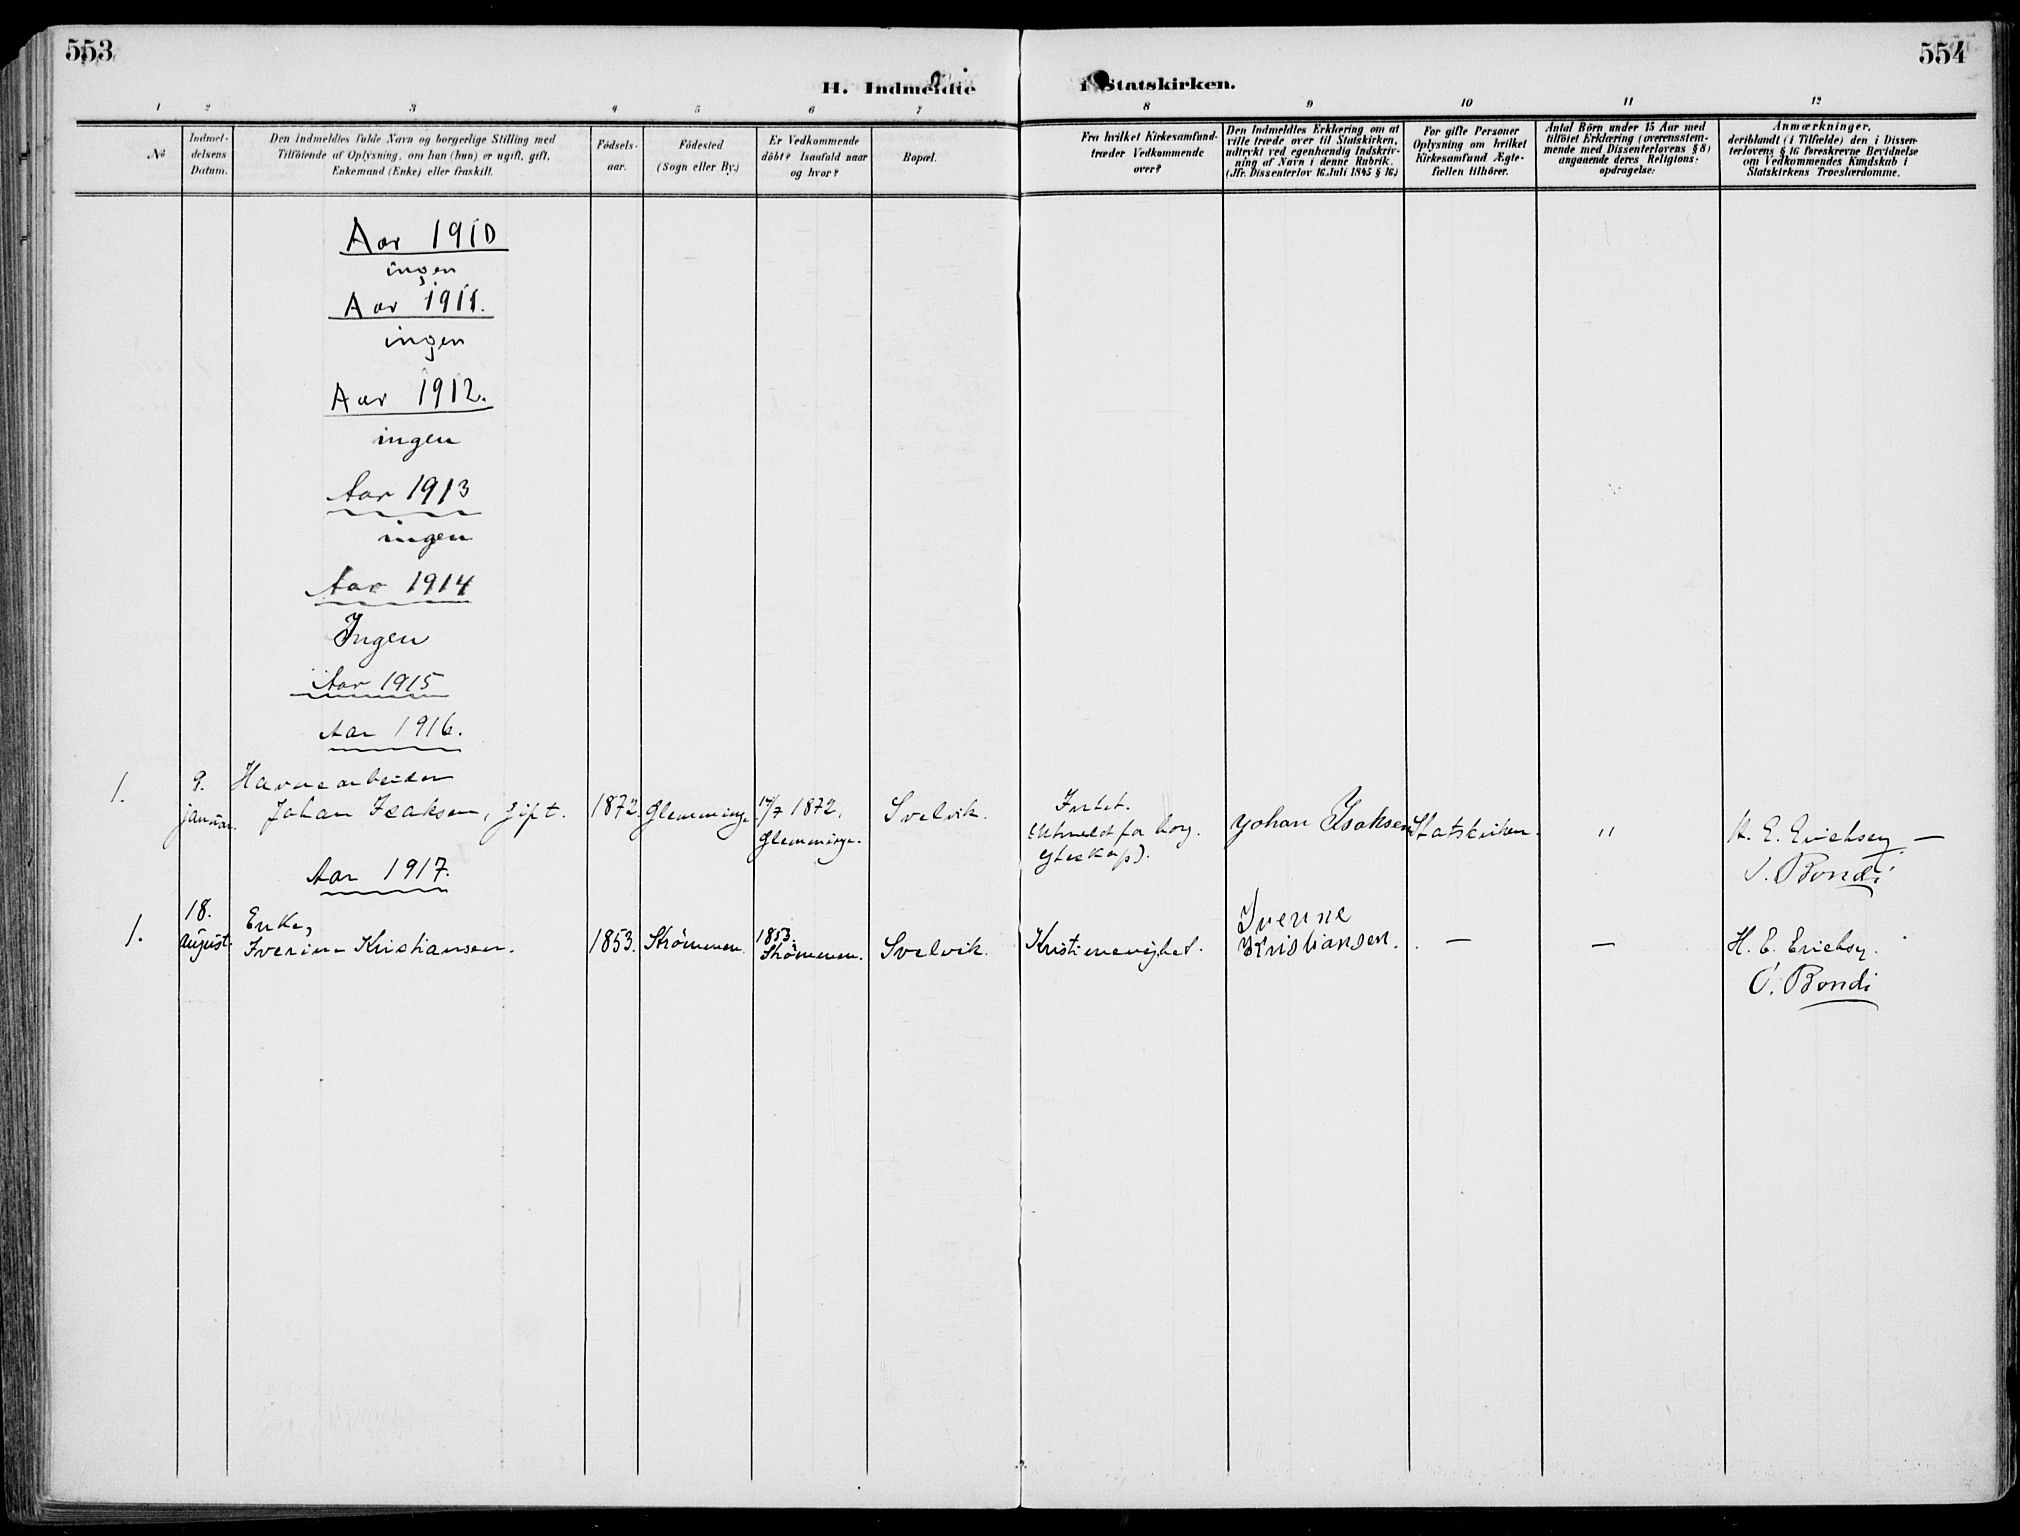 553
554
H. Indmeldte
i Statskirken.
1 2 3 4 5 6 7 8 9 10 11 12
No
Indmel-
delsens
Datum.
Den Indmeldtes fulde Navn og borgerlige Stilling med
Tilföiende af Oplysning, om han (hun) er ugift, gift,
Enkemand (Enke) eller fraskilt.
Födsels-
aar.
Födested
(Sogn eller By.)
Er Vedkommende
döbt? Isaafald naar
og hvor?
Bopæl.
Fra hvilket Kirkesamfund
træder Vedkommende
over?
Den Indmeldtes Erklæring om at
ville træde over til Statskirken,
udtrykt ved egenhændig Indskriv-
ning af Navn i denne Rubrik.
(Jfr. Dissenterlov 16. Juli 1845 § 16.)
For gifte Personer
Oplysning om hvilket
Kirkesamfund Ægte-
fællen tilhörer.
Antal Börn under 15 Aar med
tilföiet Erklæring (overensstem-
mende med Dissenterlovens § 8)
angaaende deres Religions-
opdragelse:
Anmærkninger,
deriblandt (i Tilfælde) den i Dissen-
terlovens § 16 foreskrevne Bevidnelse
om Vedkommendes Kundskab i
Statskirkens Troeslærdomme.
Aar 1910
ingen
Aar 1911.
ingen
Aar 1912.
ingen
Aar 1913
ingen
Aar 1914
Ingen
Aar 1915
Aar 1916.
1.
9.
januar.
Havnearbeider
Johan Isaksen, gift.
1872.
Glemminge
17/7 1872.
Glemminge.
Svelvik.
Intet.
(Utmeldt for borg.
egteskap).
Johan Isaksen
Statskirken.
"
H. E. Erichsen. —
O. Bondi
Aar 1917.
1.
18.
august.
Enke,
Iverine Kristiansen.
1853.
Strömmen.
1853.
Strömmen.
Svelvik.
Kristimenighet.
Iverine
Kristiansen.
—
—
H. E. Erichsen.
O. Bondi